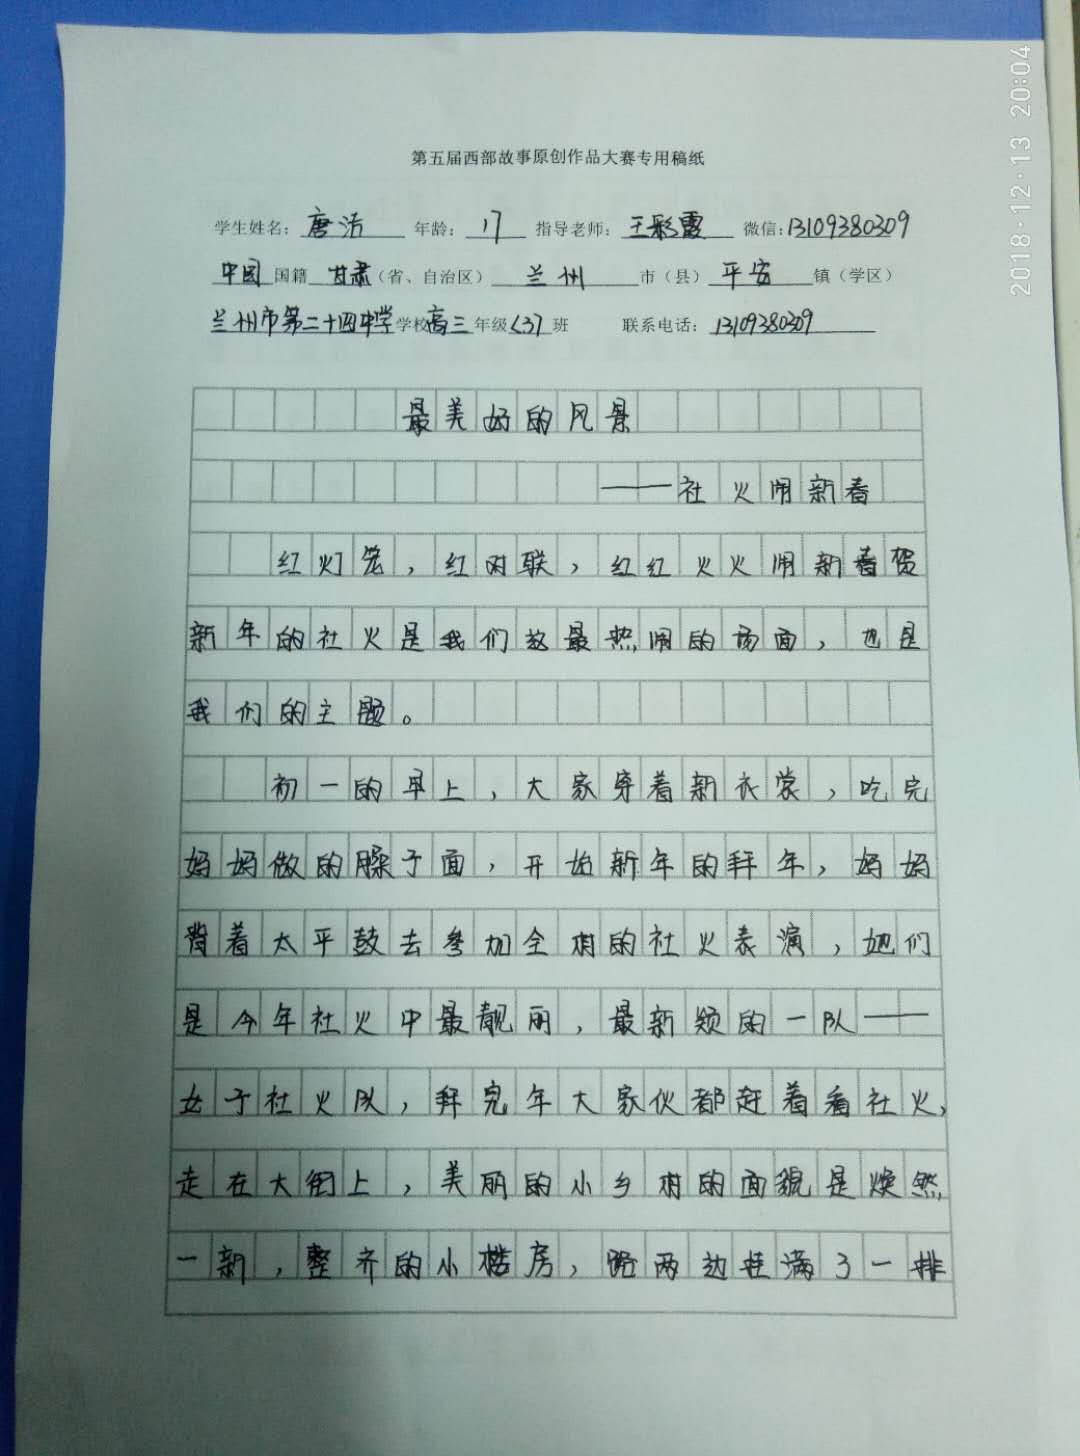 2018·12·13 20:04
第五届西部故事原创作品大赛专用稿纸
学生姓名：唐洁 年龄：17 指导老师：王彩霞 微信：13109380309
中国国籍 甘肃（省、自治区） 兰州 市（县） 平安 镇（学区）
兰州市第二十四中学学校高三年级（37）班 联系电话：13109380309
最美好的风景
——社火闹新春
红灯笼，红对联，红红火火闹新春贺
新年的社火是我们这最热闹的场面，也是
我们的主题。
初一的早上，大家穿着新衣裳，吃完
妈妈做的臊子面，开始新年的拜年，妈妈
背着太平鼓去参加全村的社火表演，她们
是今年社火中最靓丽，最新颖的一队——
女子社火队，拜完年大家伙都赶着看社火，
走在大街上，美丽的小乡村的面貌是焕然
一新，整齐的小楼房，路两边挂满了一排